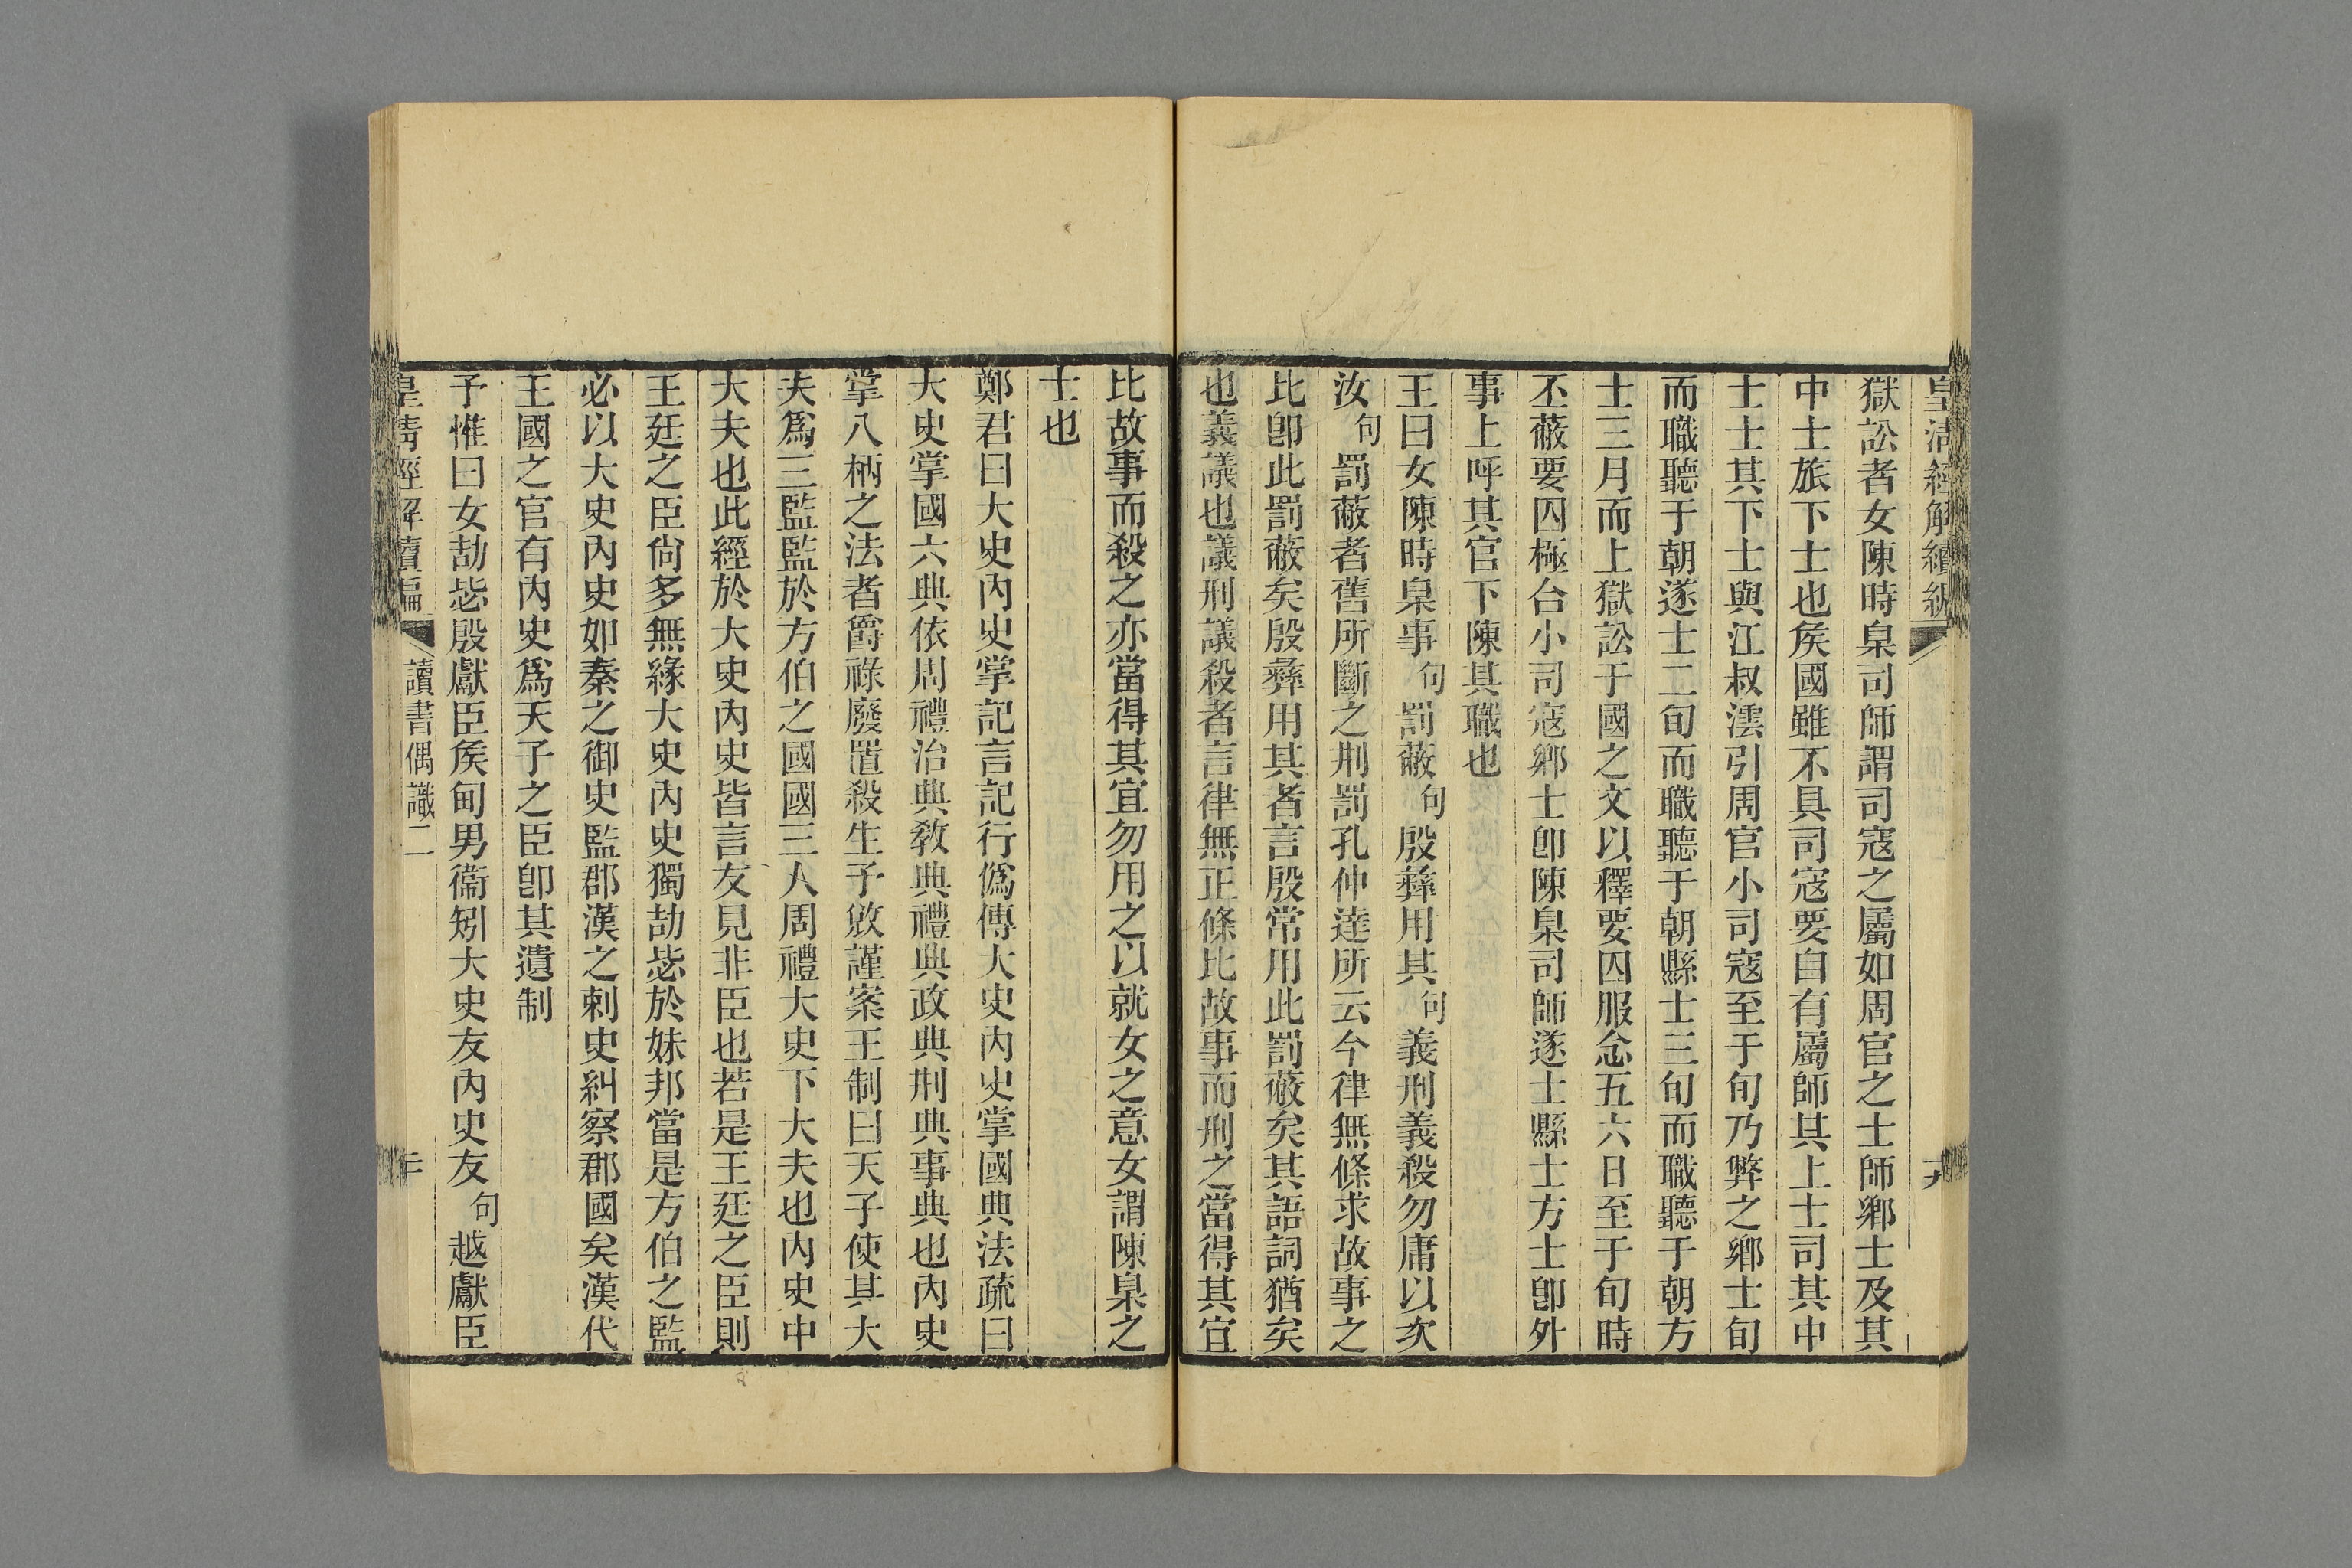 皇清經解續編 十九
獄訟者女陳時臬司師謂司寇之屬如周官之士師鄉士及其
中士旅下士也矦國雖不具司寇要自有屬師其上士司其中
士士其下士與江叔澐引周官小司寇至于旬乃弊之鄉士旬
而職聽于朝遂士二旬而職聽于朝縣士三旬而職聽于朝方
士三月而上獄訟于國之文以釋要囚服念五六日至于旬時
丕蔽要囚極合小司寇鄉士卽陳臬司師遂士縣士方士卽外
事上呼其官下陳其職也
王曰女陳時臬事句罰蔽句殷彝用其句義刑義殺勿庸以次
汝句罰蔽者舊所斷之刑罰孔仲達所云今律無條求故事之
比卽此罰蔽矣殷彝用其者言殷常用此罰蔽矣其語詞猶矣
也義議也議刑議殺者言律無正條比故事而刑之當得其宜
比故事而殺之亦當得其宜勿用之以就女之意女謂陳臬之
士也
鄭君曰大史內史掌記言記行僞傳大史內史掌國典法疏曰
大史掌國六典依周禮治典敎典禮典政典刑典事典也內史
掌八柄之法者爵祿廢置殺生予敓謹案王制曰天子使其大
夫爲三監監於方伯之國國三人周禮大史下大夫也內史中
大夫也此經於大史內史皆言友見非臣也若是王廷之臣則
王廷之臣尙多無緣大史內史獨劼毖於妹邦當是方伯之監
必以大史內史如秦之御史監郡漢之刺史糾察郡國矣漢代
王國之官有內史爲天子之臣卽其遺制
予惟曰女劼毖殷獻臣矦甸男衞矧大史友內史友句越獻臣
皇清經解續編 讀書偶識二 二十